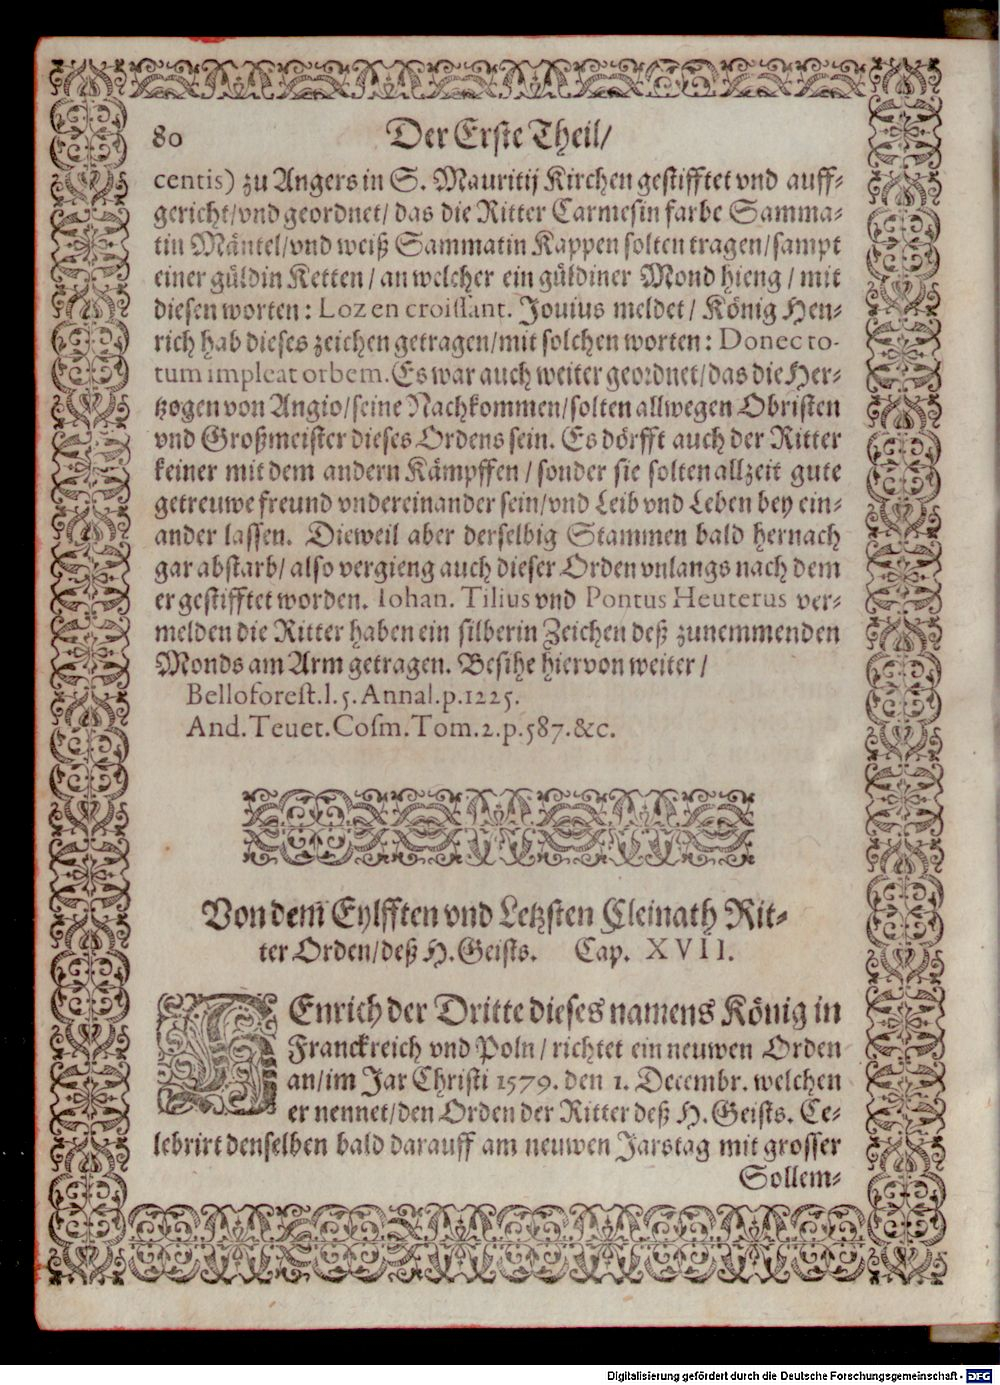 80 Der Erste Theil/
centis) zu Angers in S. Mauritij Kirchen gestifftet vnd auff-
gericht/vnd geordnet/ das die Ritter Carmesin farbe Samma-
tin Mäntel/vnd weiß Sammatin Kappen solten tragen/sampt
einer güldin Ketten / an welcher ein güldiner Mond hieng / mit
diesen worten: Loz en croissant. Jouius meldet/ König Hen-
rich hab dieses zeichen getragen/mit solchen worten: Donec to-
tum impleat orbem. Es war auch weiter geordnet/das die Her-
tzogen von Angio/seine Nachkommen/solten allwegen Obristen
vnd Großmeister dieses Ordens sein. Es dörfft auch der Ritter
keiner mit dem andern Kämpffen / sonder sie solten allzeit gute
getreuwe freund vndereinander sein/vnd Leib vnd Leben bey ein-
ander lassen. Dieweil aber derselbig Stammen bald hernach
gar abstarb/ also vergieng auch dieser Orden vnlangs nach dem
er gestifftet worden. Iohan. Tilius vnd Pontus Heuterus ver-
melden die Ritter haben ein silberin Zeichen deß zunemmenden
Monds am Arm getragen. Besihe hiervon weiter /
Belloforest. l. 5. Annal. p. 1225.
And. Teuet. Cosm. Tom. 2. p. 587. &c.
Von dem Eylfften vnd Letzsten Cleinath Rit-
ter Orden/deß H. Geists. Cap. XVII.
HEnrich der Dritte dieses namens König in
Franckreich vnd Poln / richtet ein neuwen Orden
an/im Jar Christi 1579. den 1. Decembr. welchen
er nennet/den Orden der Ritter deß H. Geists. Ce-
lebrirt denselben bald darauff am neuwen Jarstag mit grosser
Sollem-
Digitalisierung gefördert durch die Deutsche Forschungsgemeinschaft - DFG